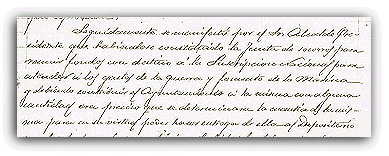 Seguidamente se manifestó por el Sor Alcalde Pre-
sidente que habiendose constituido la Junta de socorros para
reunir fondos con destino á la Suscripcion Nacional para
atender á los gastos de la guerra y fomento de la Marina
y debiendo contribuir el Ayuntamiento á la misma con alguna
cantidad era preciso que se determinara la cuantia de la mis-
ma para en su virtud poder hacer entrega de ella al Depositario